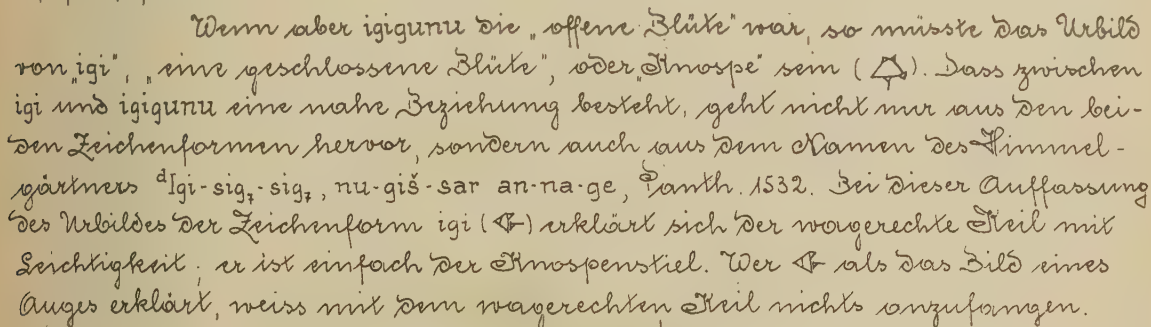 Wenn aber igigunu die „offene Blüte“ war, so müsste das Urbild
von „igi“, „eine geschlossene Blüte“, oder „Knospe“ sein ( ). Dass zwischen
igi und igigunu eine nahe Beziehung besteht, geht nicht nur aus den bei-
den Zeichenformen hervor, sondern auch aus dem Namen des Himmel-
gärtners ᵈIgi-sig₇-sig₇, nu-giš-sar an-na-ge, Panth. 1532. Bei dieser Auffassung
des Urbildes der Zeichenform igi ( ) erklärt sich der wagerechte Keil mit
Leichtigkeit; er ist einfach der Knospenstiel. Wer als das Bild eines
Auges erklärt, weiss mit dem wagerechten Keil nichts anzufangen.